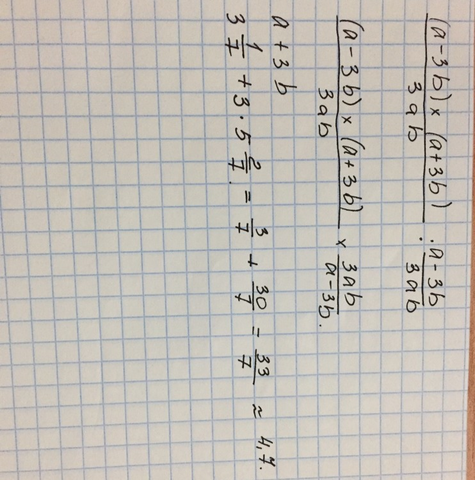 (a-3b)×(a+3b)/3ab : a-3b/3ab
(a-3b)×(a+3b)/3ab × 3ab/a-3b.
a+3b
3 1/7 + 3 · 5 2/7 = 3/7 + 30/7 = 33/7 ≈ 4,7.